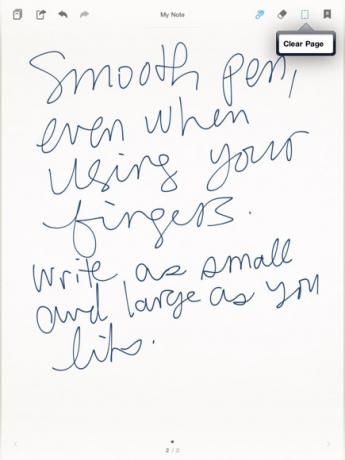 My Note
Clear Page
Smooth pen,
even when
using your
fingers.
Write as small
and large as you
like.
2 / 2